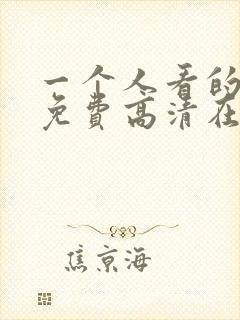 一个人看的
免费高清在
焦京海